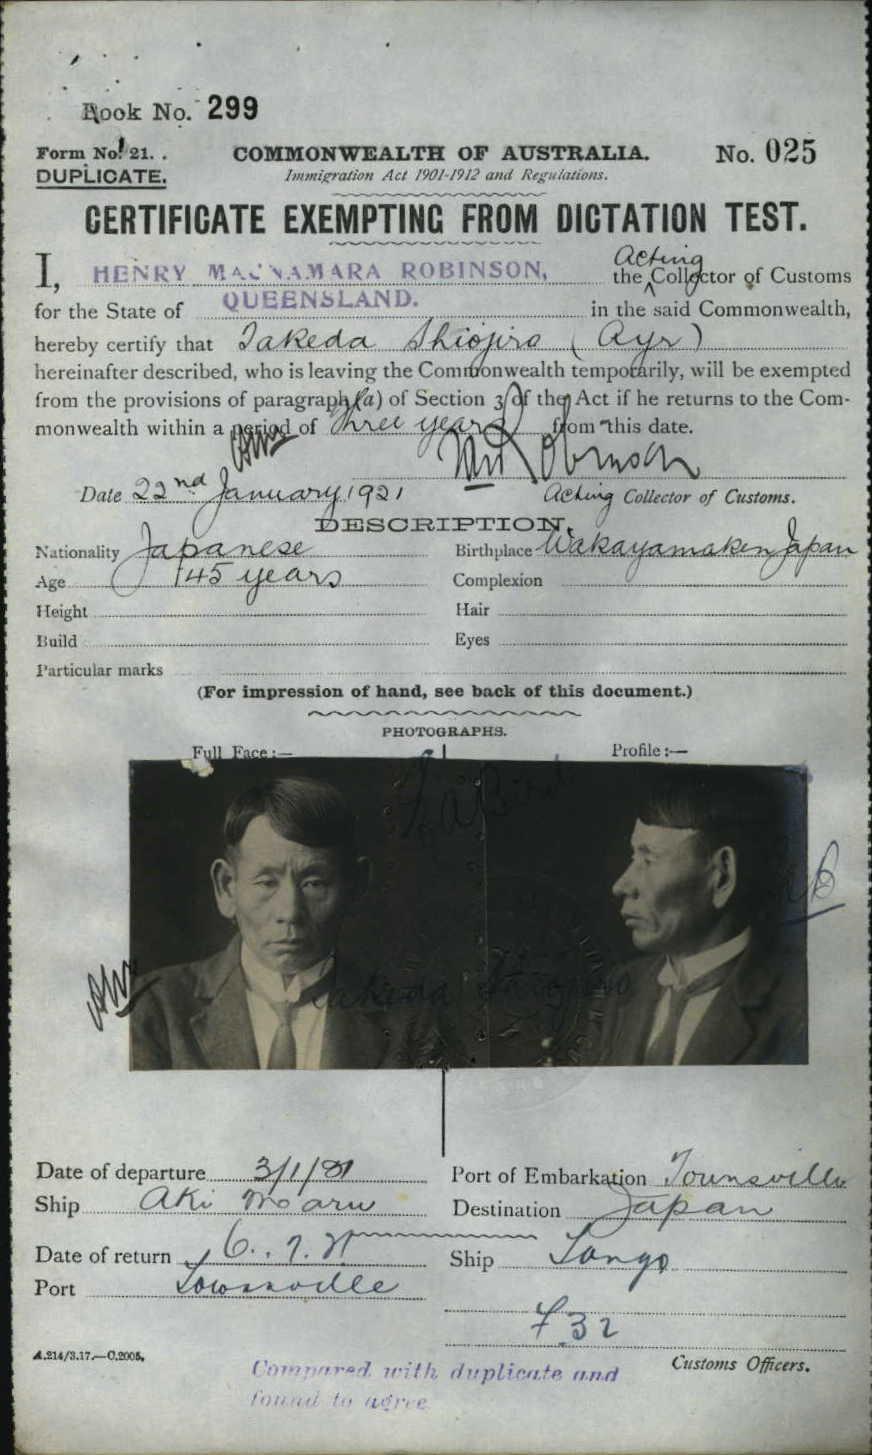 Book No. 299
Form No. 21.
COMMONWEALTH OF AUSTRALIA.
No. 025
DUPLICATE.
Immigration Act 1901-1912 and Regulations.
CERTIFICATE EXEMPTING FROM DICTATION TEST.
I, HENRY MACNAMARA ROBINSON, the Acting Collector of Customs
for the State of QUEENSLAND. in the said Commonwealth,
hereby certify that Takeda Shiojiro (Ayr)
hereinafter described, who is leaving the Commonwealth temporarily, will be exempted
from the provisions of paragraph (a) of Section 3 of the Act if he returns to the Com-
monwealth within a period of three years from this date.
Date 22nd January 1921
Acting Collector of Customs.
DESCRIPTION.
Nationality Japanese Birthplace Wakayamaken Japan
Age 45 years Complexion
Height Hair
Build Eyes
Particular marks
(For impression of hand, see back of this document.)
PHOTOGRAPHS.
Full Face :— Profile :—
Takeda
Date of departure Port of Embarkation Townsville
Ship Aki Maru Destination Japan
Date of return Ship
Port Townsville
F 32
A.214/3.17.—C.2005.
Customs Officers.
Compared with duplicate and
found to agree